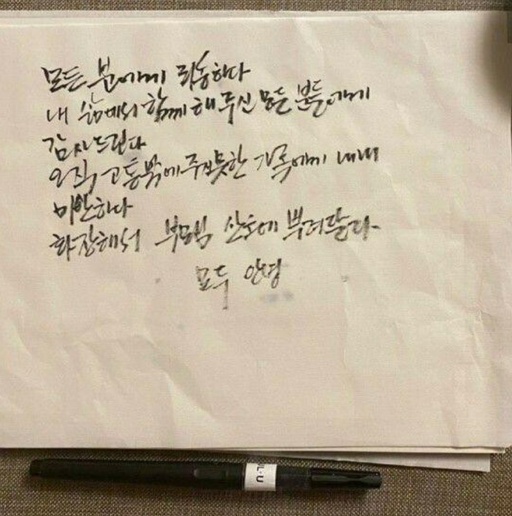 모든 분에게 죄송하다
내 삶에서 함께해 주신 모든 분들에게
감사드린다
오직 고통밖에 주지못한 가족에게 내내
미안하다
화장해서 부모님 산소에 뿌려달라
모두 안녕
OL·U